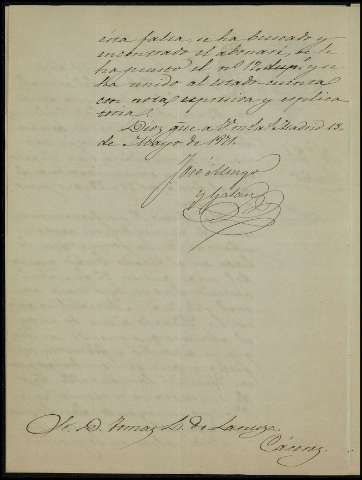 esta falta, se ha buscado y
encontrado el abonaré, se le
ha puesto el nº 13 dupº y se
ha unido al estado cuenta
con nota expresiva y esplica
toria.
Dios gue a V. Madrid 13
de Mayo de 1871.
José Mingo
y Galan
Sr. D. Tomas L. de
Cáceres